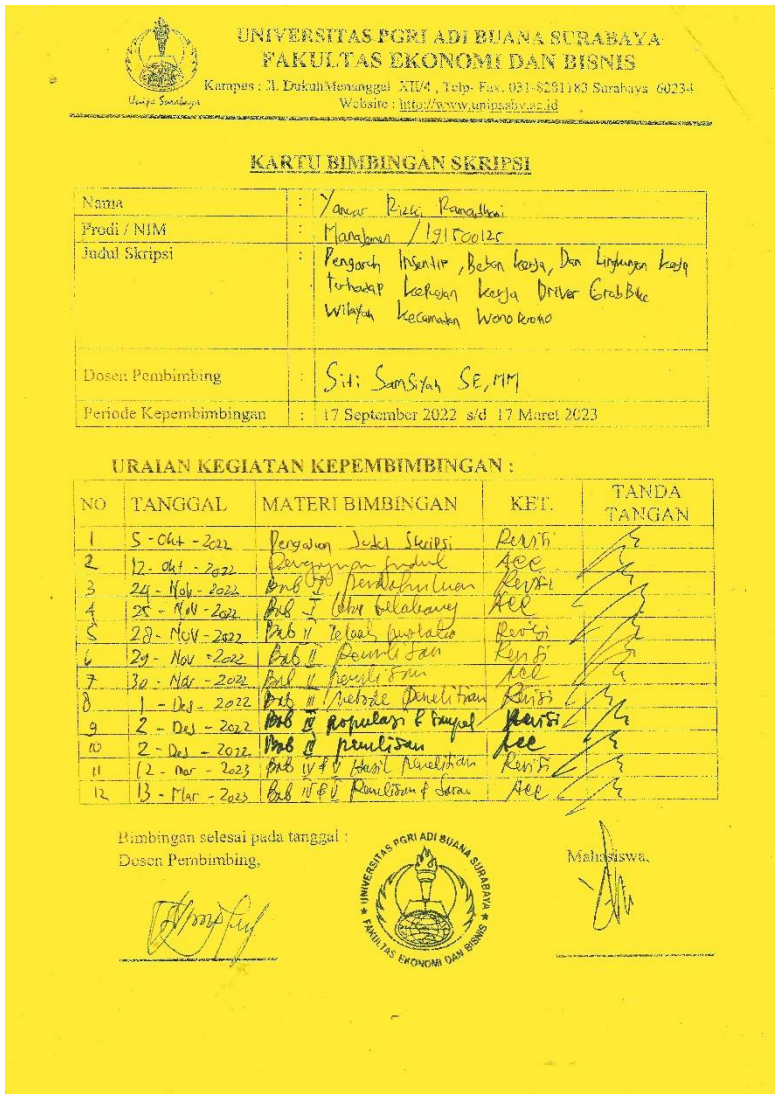 UNIVERSITAS PGRI ADI BUANA SURABAYA
FAKULTAS EKONOMI DAN BISNIS
Kampus : Jl. DukuhMenanggal XII/4 , Telp- Fax. 031-8281183 Surabaya 60234
Website : http://www.unipasby.ac.id
Unipa Surabaya
KARTU BIMBINGAN SKRIPSI
Nama : Yanuar Rizki Ramadhani
Prodi / NIM : Manajemen / 191500125
Judul Skripsi : Pengaruh Insentif, Beban kerja, Dan Lingkungan kerja
terhadap kepuasan kerja Driver GrabBike
Wilayah kecamatan Wonokromo
Dosen Pembimbing : Siti Samsiyah SE, MM
Periode Kepembimbingan : 17 September 2022 s/d 17 Maret 2023
URAIAN KEGIATAN KEPEMBIMBINGAN :
NO TANGGAL MATERI BIMBINGAN KET. TANDA TANGAN
1 5 - Okt - 2022 Pengajuan Judul Skripsi Revisi
2 12 - okt - 2022 Pengajuan judul Acc
3 24 - Nov - 2022 Bab I pendahuluan Revisi
4 25 - Nov - 2022 Bab I latar belakang Acc
5 28 - Nov - 2022 Bab II Telaah pustaka Revisi
6 29 - Nov - 2022 Bab II penulisan Revisi
7 30 - Nov - 2022 Bab II penulisan Acc
8 1 - Des - 2022 Bab III Metode penelitian Revisi
9 2 - Des - 2022 Bab III populasi & sampel Revisi
10 2 - Des - 2022 Bab III penulisan Acc
11 12 - Mar - 2023 Bab IV & V Hasil penelitian Revisi
12 13 - Mar - 2023 Bab IV & V Penulisan & Saran Acc
Bimbingan selesai pada tanggal :
Dosen Pembimbing,
Mahasiswa,
UNIVERSITAS PGRI ADI BUANA SURABAYA
FAKULTAS EKONOMI DAN BISNIS